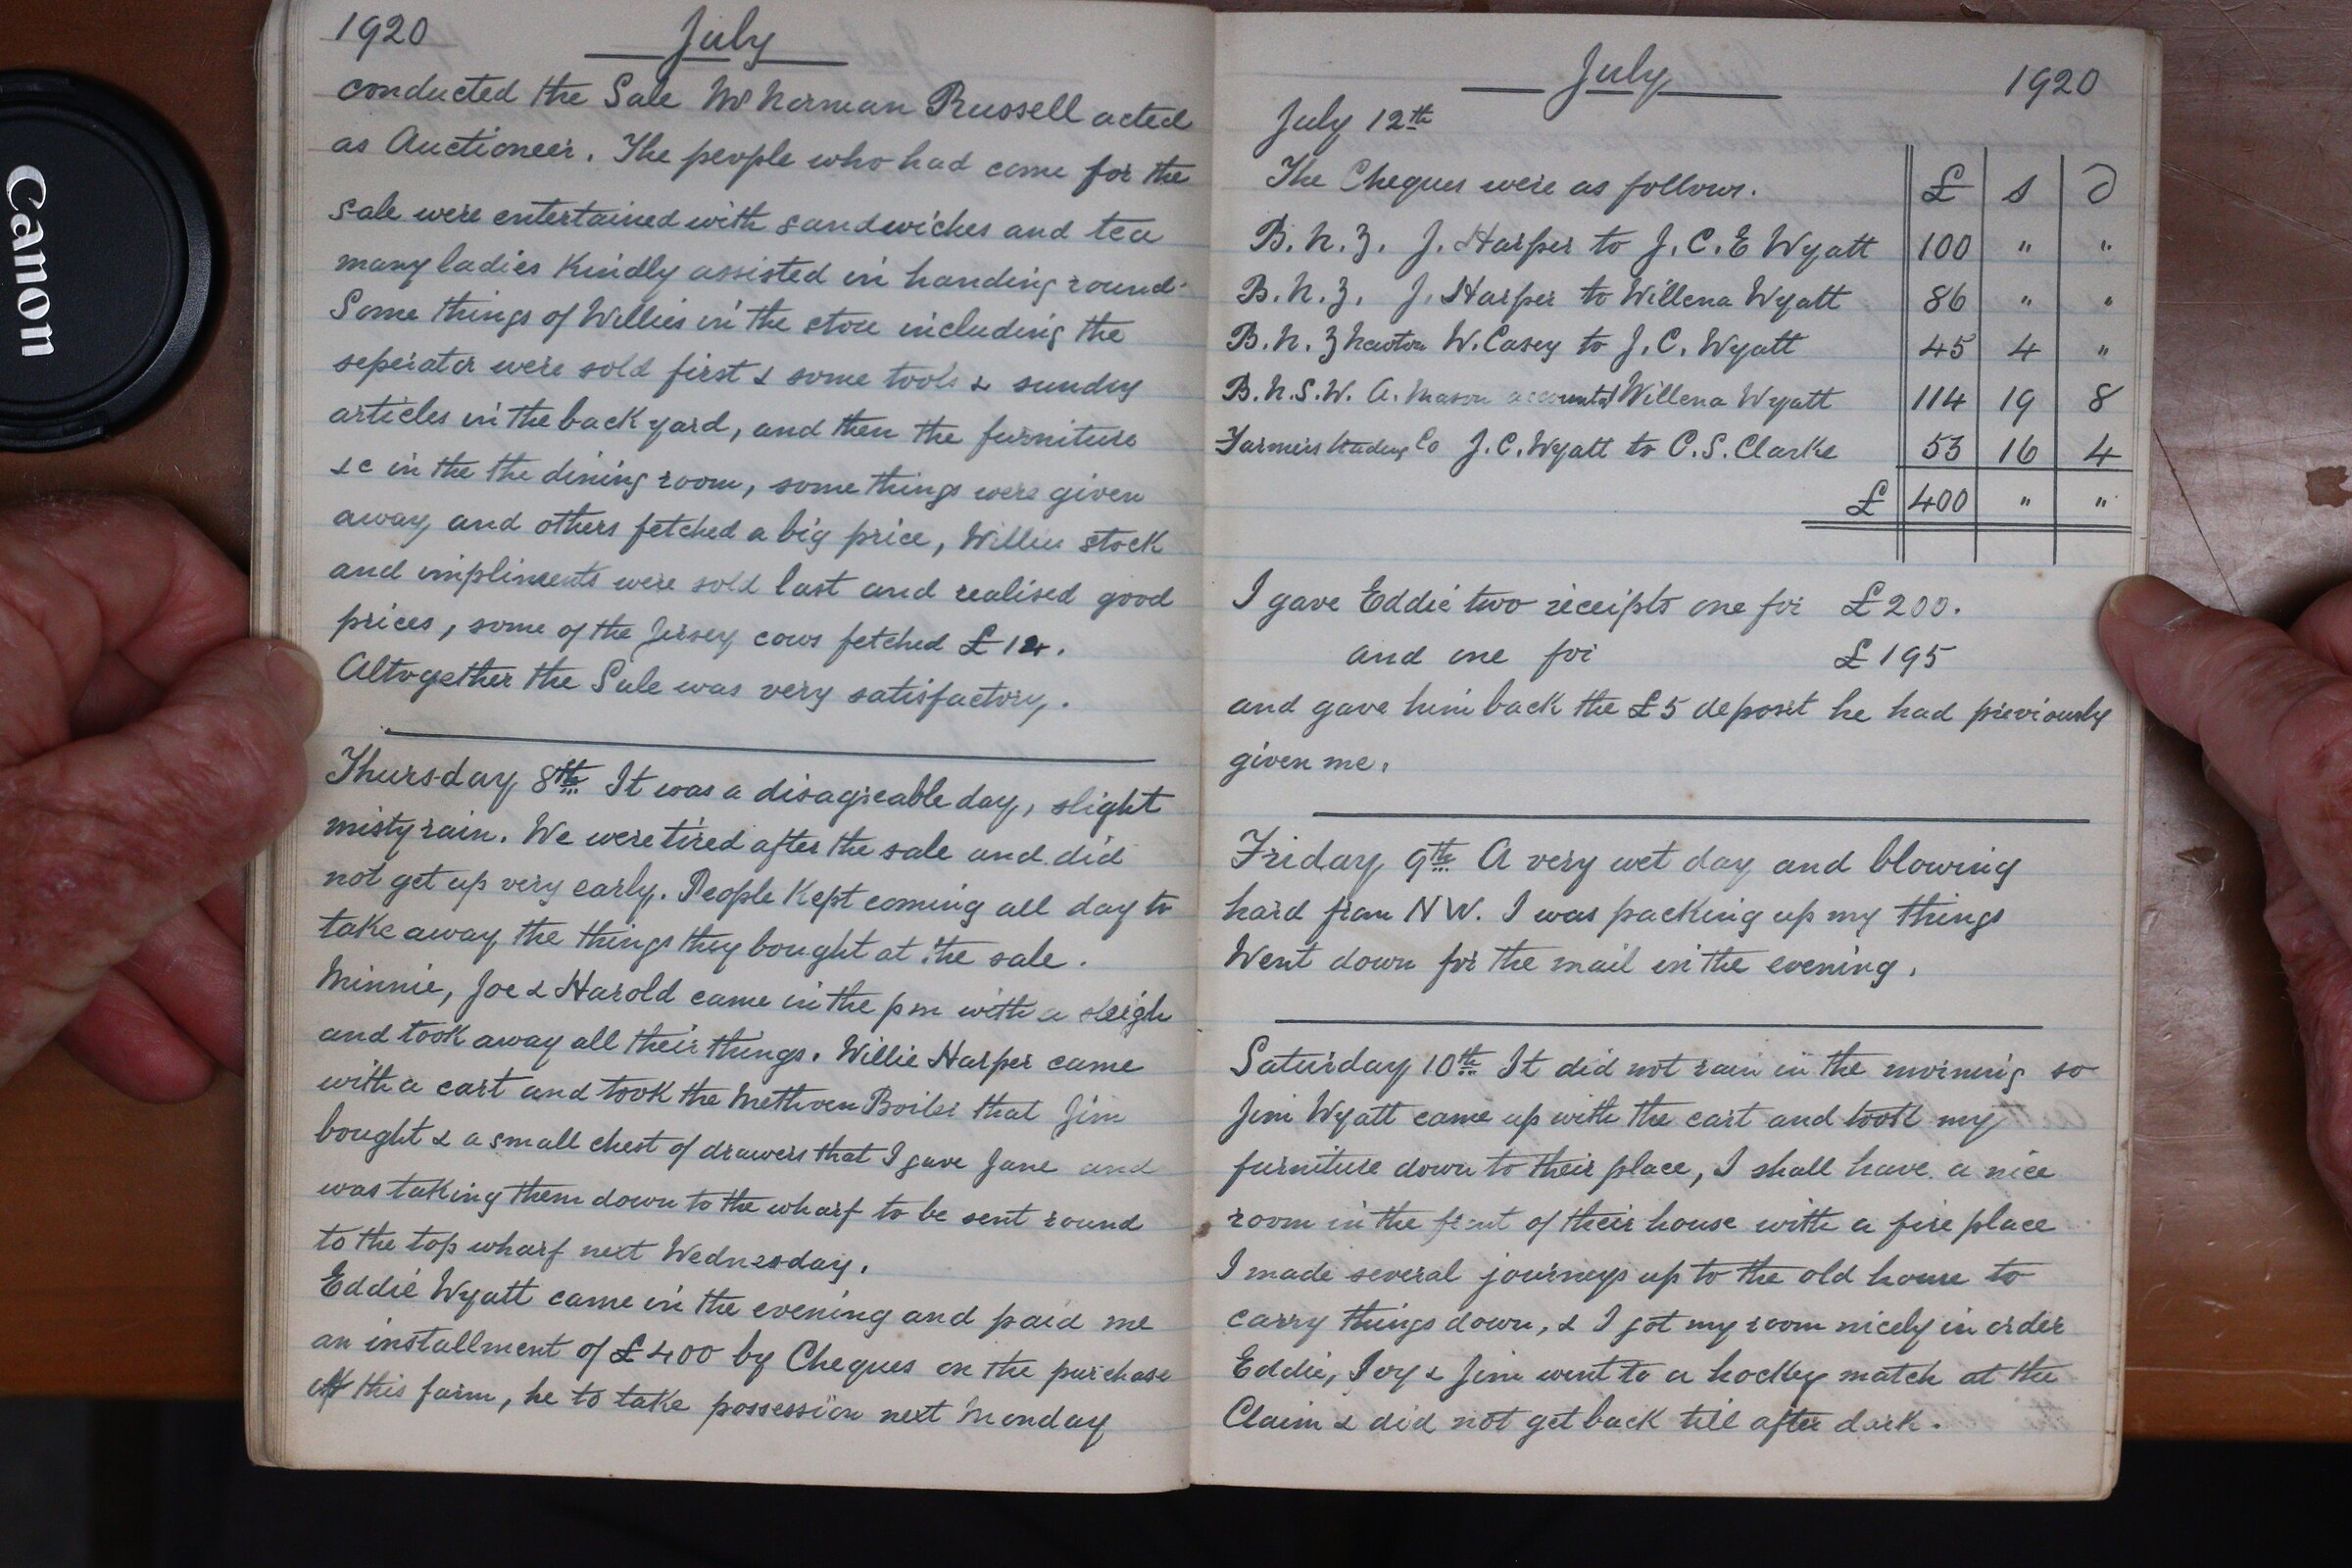 Canon
1920 July
conducted the Sale Mr Norman Russell acted
as Auctioneer. The people who had come for the
sale were entertained with sandwiches and tea
many ladies kindly assisted in handing round.
Some things of Willies in the store including the
seperator were sold first & some tools & sundry
articles in the back yard, and then the furniture
&c in the the dining room, some things were given
away and others fetched a big price, Willies stock
and impliments were sold last and realised good
prices, some of the Jersey cows fetched £
Altogether the Sale was very satisfactory.
Thursday 8th It was a disagreable day, slight
misty rain. We were tired after the sale and did
not get up very early. People kept coming all day to
take away the things they bought at the sale.
Minnie, Joe & Harold came in the pm with a sleigh
and took away all their things. Willie Harper came
with a cart and took the Methven Boiler that Jim
bought & a small chest of drawers that I gave Jane and
was taking them down to the wharf to be sent round
to the top wharf next Wednesday.
Eddie Wyatt came in the evening and paid me
an installment of £400 by Cheques on the purchase
of this farm, he to take possession next Monday
July 1920
July 12th
The Cheques were as follows. £ s d
B.N.Z. J. Harper to J.C.E Wyatt 100 " "
B.N.Z. J. Harper to Willena Wyatt 86 " "
B.N.Z Newton W. Casey to J.C. Wyatt 45 4 "
B.N.S.W. A. Mason Willena Wyatt 114 19 8
Farmers trading Co J.C. Wyatt to C.S. Clarke 53 16 4
£ 400 " "
I gave Eddie two receipts one for £200.
and one for £195
and gave him back the £5 deposit he had previously
given me.
Friday 9th A very wet day and blowing
hard from NW. I was packing up my things
Went down for the mail in the evening.
Saturday 10th It did not rain in the morning so
Jim Wyatt came up with the cart and took my
furniture down to their place, I shall have a nice
room in the front of their house with a fire place
I made several journeys up to the old house to
carry things down, & I got my room nicely in order
Eddie, Ivy & Jim went to a hockey match at the
Claim & did not get back till after dark.